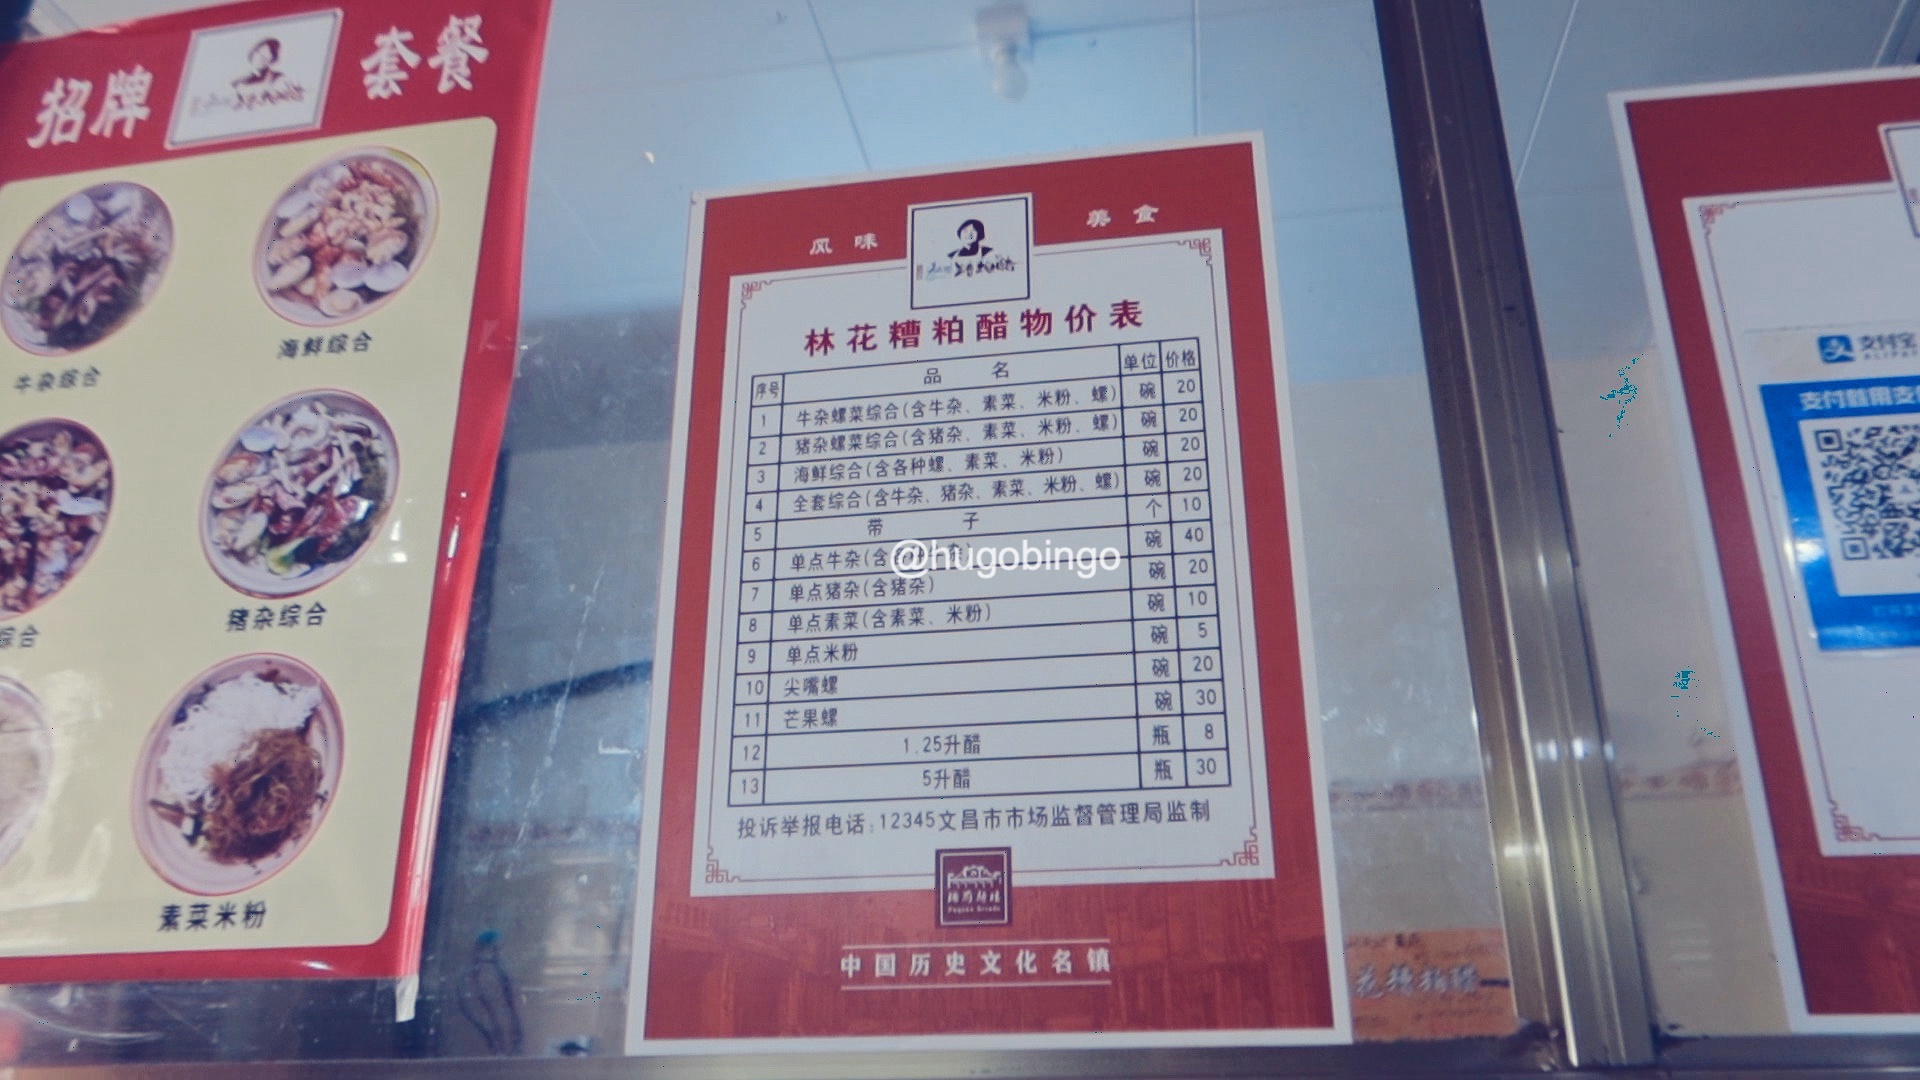 招牌 套餐
牛杂综合
海鲜综合
综合
猪杂综合
素菜米粉
风味 美食
林花糟粕醋物价表
序号 品 名 单位 价格
1 牛杂螺菜综合(含牛杂、素菜、米粉、螺) 碗 20
2 猪杂螺菜综合(含猪杂、素菜、米粉、螺) 碗 20
3 海鲜综合(含各种螺、素菜、米粉) 碗 20
4 全套综合(含牛杂、猪杂、素菜、米粉、螺) 碗 20
5 带 子 个 10
6 单点牛杂(含 碗 40
7 单点猪杂(含猪杂) 碗 20
8 单点素菜(含素菜、米粉) 碗 10
9 单点米粉 碗 5
10 尖嘴螺 碗 20
11 芒果螺 碗 30
12 1.25升醋 瓶 8
13 5升醋 瓶 30
投诉举报电话:12345文昌市市场监督管理局监制
中国历史文化名镇
@hugobingo
支付宝